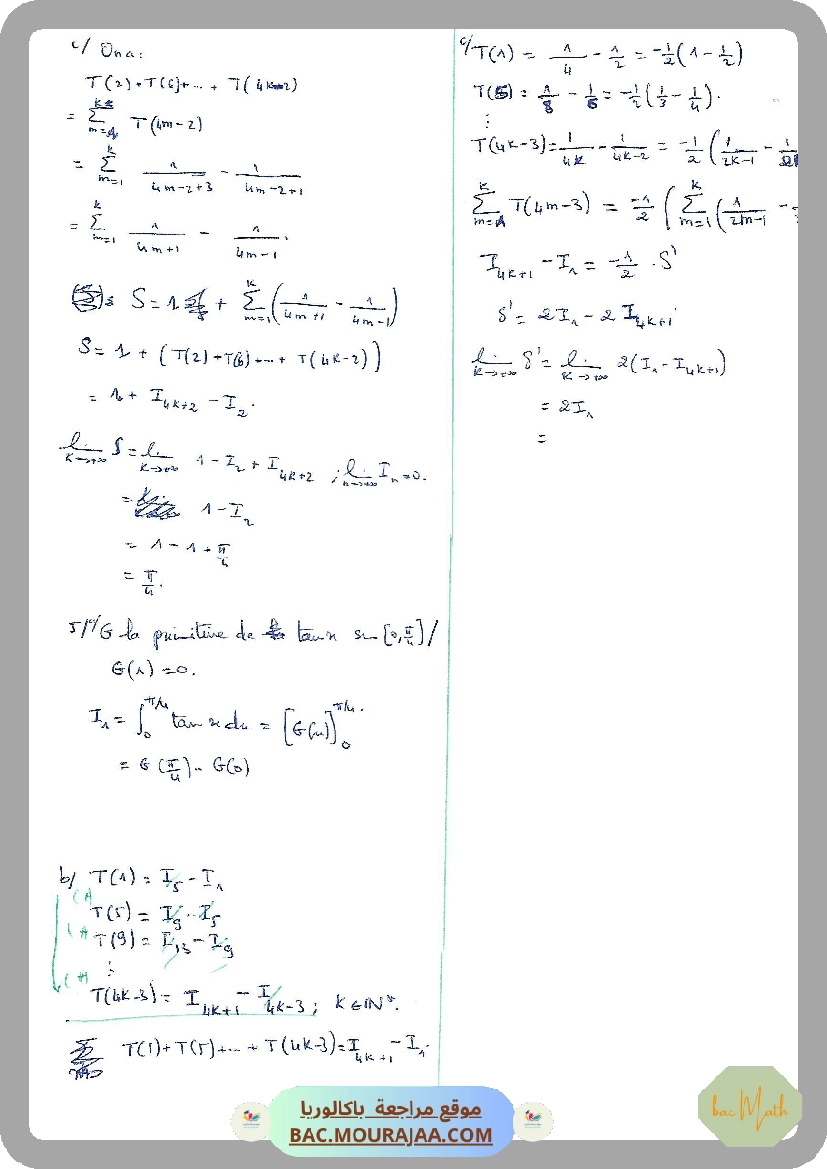 c/ Ona:
T(2)+T(6)+...+ T(4k-2)
= Σ_{m=1}^{k} T(4m-2)
= Σ_{m=1}^{k} 1/(4m-2+3) - 1/(4m-2+1)
= Σ_{m=1}^{k} 1/(4m+1) - 1/(4m-1).
S = 1 + Σ_{m=1}^{k} (1/(4m+1) - 1/(4m-1))
S = 1 + (T(2)+T(6)+...+ T(4k-2))
= 1 + I_{4k+2} - I_2.
lim_{k→+∞} S = lim_{k→+∞} 1 - I_2 + I_{4k+2} ; lim_{n→+∞} I_n = 0.
= 1 - I_2
= 1 - 1 + π/4
= π/4.
5/a/ G la primitive de tan x sur [0, π/4] /
G(1) = 0.
I_1 = ∫_0^{π/4} tan x dx = [G(x)]_0^{π/4}.
= G(π/4) - G(0)
b/ T(1) = I_5 - I_1
T(5) = I_9 - I_5
T(9) = I_13 - I_9
⋮
T(4k-3) = I_{4k+1} - I_{4k-3} ; k ∈ IN*.
T(1)+T(5)+...+ T(4k-3) = I_{4k+1} - I_1.
c/ T(1) = 1/4 - 1/2 = -1/2 (1 - 1/2)
T(5) = 1/8 - 1/6 = -1/2 (1/3 - 1/4).
⋮
T(4k-3) = 1/4k - 1/(4k-2) = -1/2 (1/(2k-1) - 1/2k
Σ_{m=1}^{k} T(4m-3) = -1/2 (Σ_{m=1}^{k} (1/(2m-1) -
I_{4k+1} - I_1 = -1/2 . S'
S' = 2I_1 - 2 I_{4k+1}
lim_{k→+∞} S' = lim_{k→+∞} 2(I_1 - I_{4k+1})
= 2I_1
=
موقع مراجعة باكالوريا
BAC.MOURAJAA.COM
bac Math